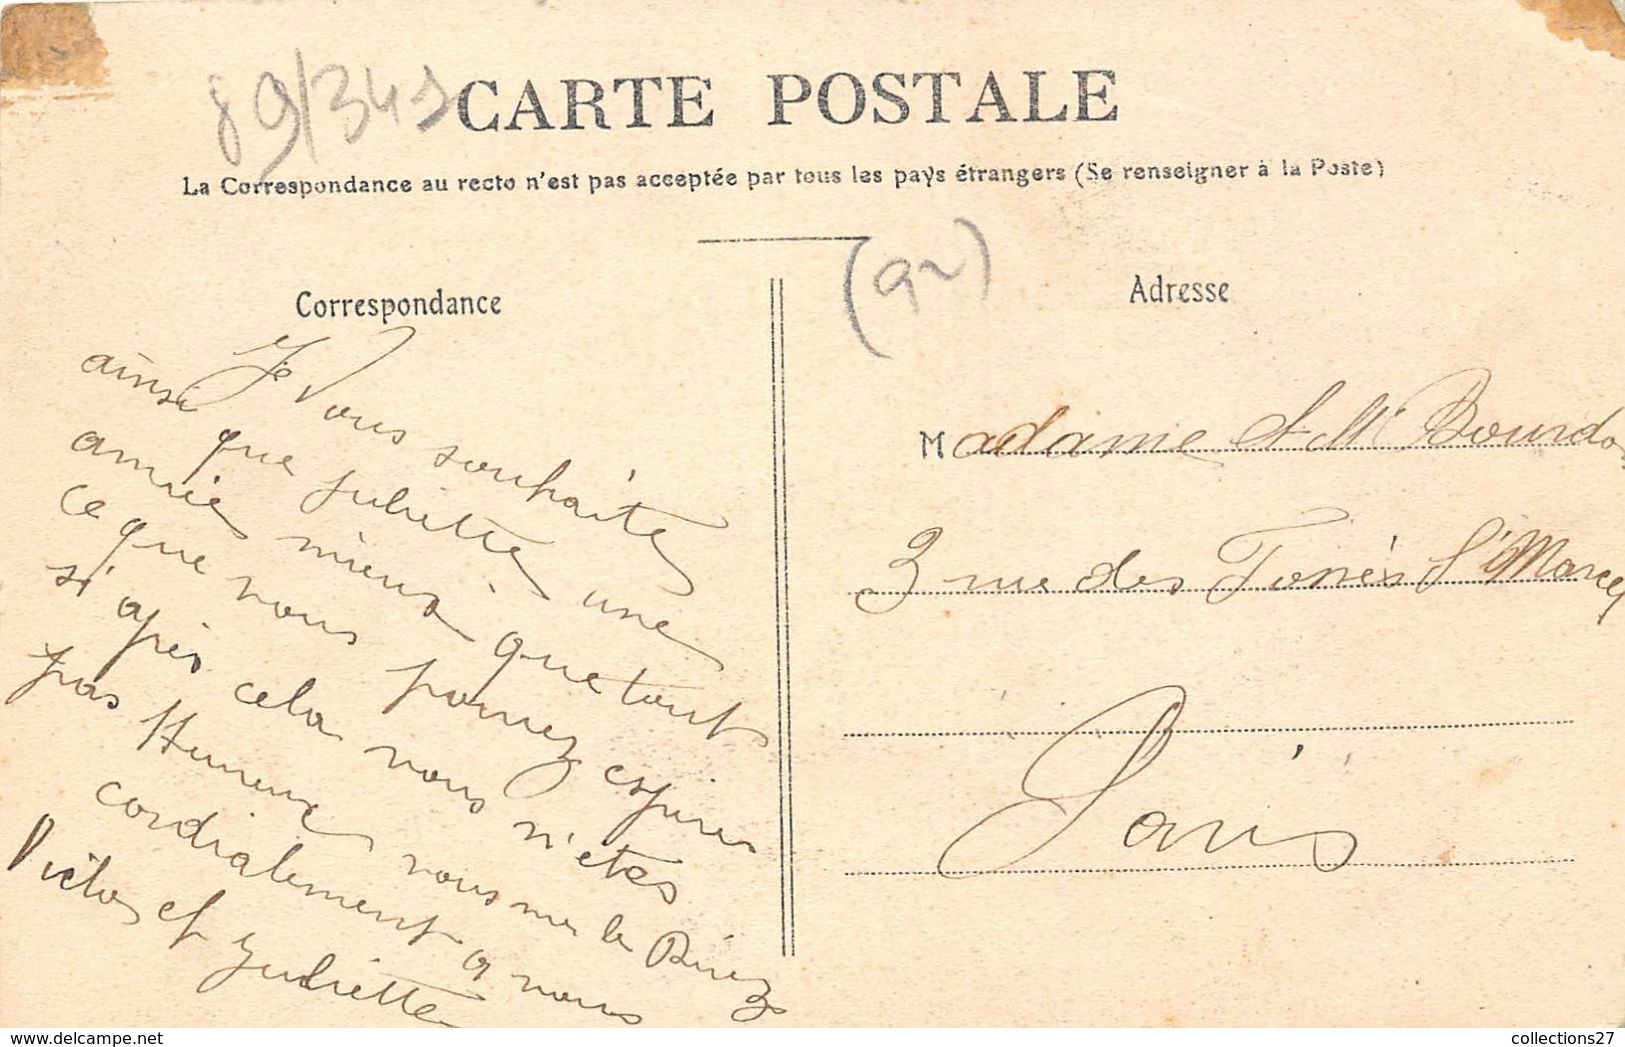 89/341
CARTE POSTALE
La Correspondance au recto n'est pas acceptée par tous les pays étrangers (Se renseigner à la Poste)
(92)
Correspondance
Je vous souhaite
ainsi que juliette une
année mieux que tout
ce que vous pouvez espérer
si après cela vous n'etes
pas Hureux vous me le Direz
cordialement a vous
Victor et Juliette
Adresse
Madame et Mr Bourdon
3 rue des Fossés St Marcel
Paris
collections27